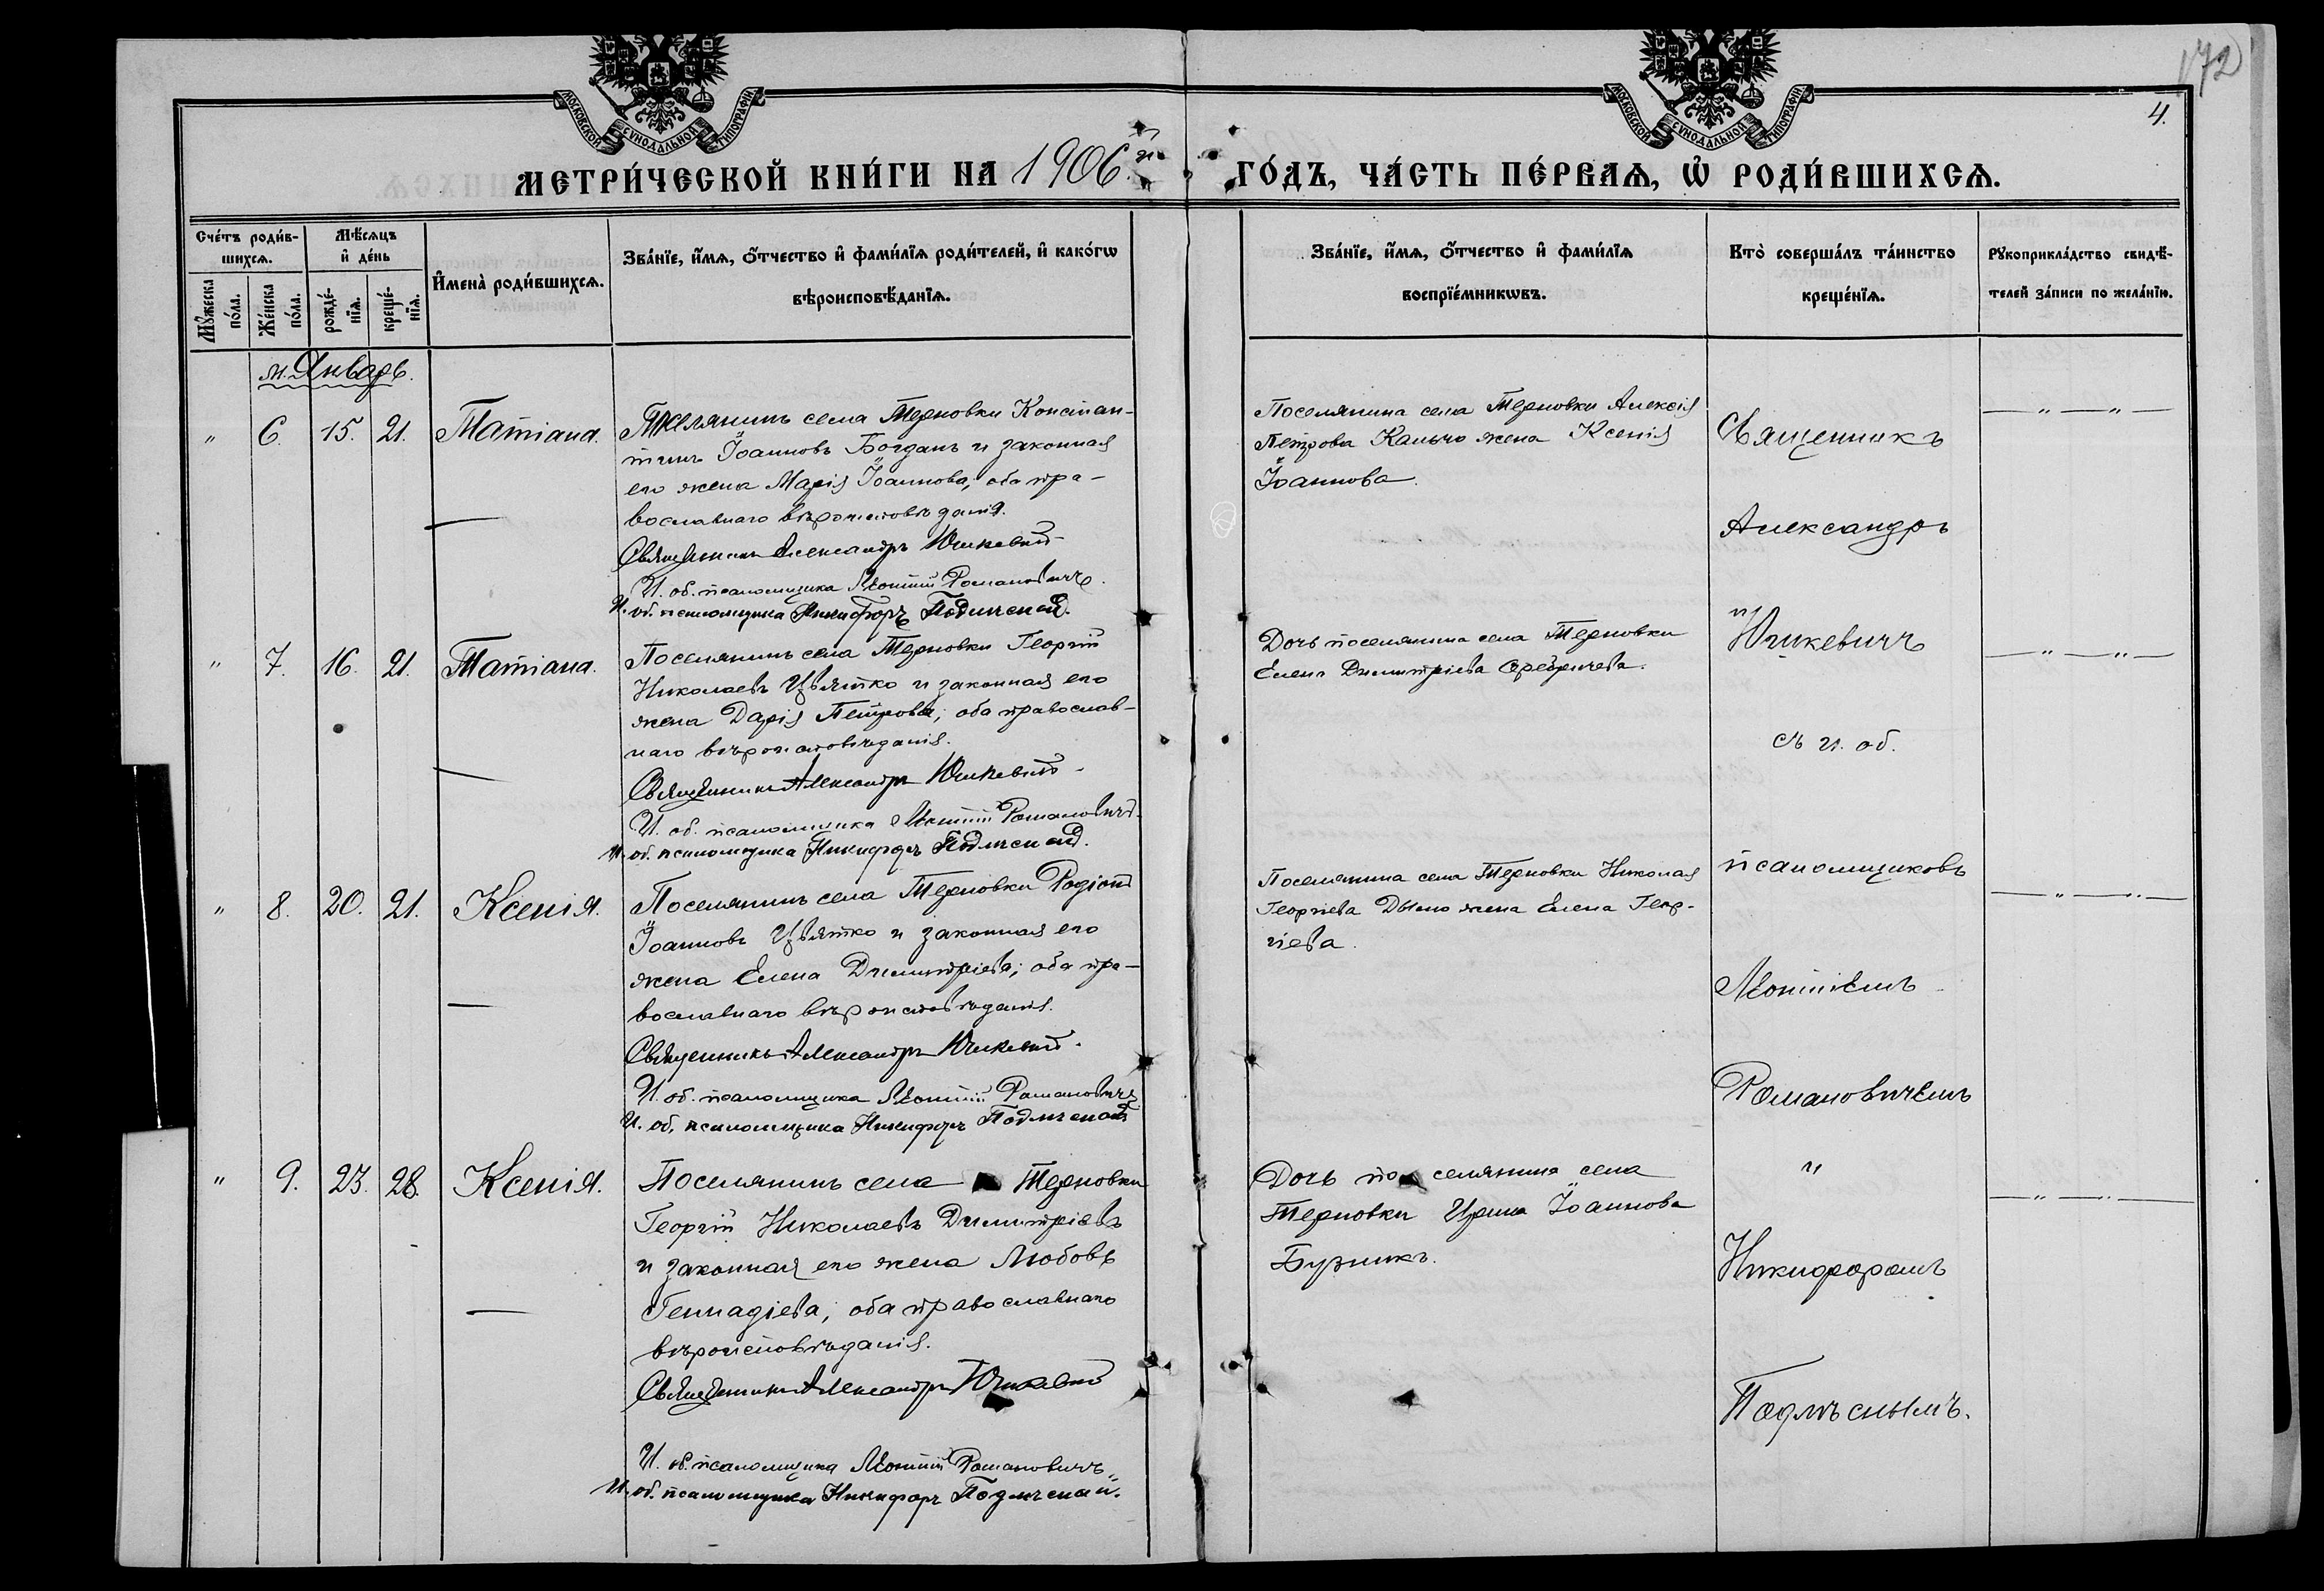 172
4.
МОСКОВСКОЙ СѴНОДАЛЬНОЙ ТИПОГРАФІИ
МОСКОВСКОЙ СѴНОДАЛЬНОЙ ТИПОГРАФІИ
МЕТРИ́ЧЕСКОЙ КНИ́ГИ НА 1906.й ГО́ДЪ, ЧА́СТЬ ПЕ́РВАѦ, Ѡ҆ РОДИ́ВШИХСѦ.
Сче́тъ роди́в-
шихсѧ.
Мꙋ́жеска по́ла.
Же́нска по́ла.
Мѣ́сѧцъ
и҆ де́нь
рожде́-
нїѧ.
креще́-
нїѧ.
И҆мена̀ роди́вшихсѧ.
Зва́нїе, и҆́мѧ, ѻ҆́тчество и҆ фами́лїѧ роди́телей, и҆ како́гѡ
вѣроисповѣ́данїѧ.
Зва́нїе, и҆́мѧ, ѻ҆́тчество и҆ фами́лїѧ
воспрїе́мникѡвъ.
Кто̀ соверша́лъ та́инство
креще́нїѧ.
Рꙋкоприкла́дство свидѣ́-
телей за́писи по жела́нїю.
м. Январь.
" 6. 15. 21. Татіана.
Поселянинъ села Терновки Констан-
тинъ Іоанновъ Богданъ и законная
его жена Марія Іоаннова, оба пра-
вославнаго вѣроисповѣданія.
Священникъ Александръ Юшкевичъ
И. об. псаломщика Леонтій Романовичъ.
И. об. псаломщика Никифоръ Подлѣсный.
Поселянина села Терновки Алексія
Петрова Калычо жена Ксенія
Іоаннова.
" 7. 16. 21. Татіана.
Поселянинъ села Терновки Георгій
Николаевъ Цвятко и законная его
жена Дарія Петрова, оба православ-
наго вѣроисповѣданія.
Священникъ Александръ Юшкевичъ
И. об. псаломщика Леонтій Романовичъ.
И. об. псаломщика Никифоръ Подлѣсный.
Дочь поселянина села Терновки
Елена Димитріева
" 8. 20. 21. Ксенія.
Поселянинъ села Терновки Родіонъ
Іоанновъ Цвятко и законная его
жена Елена Димитріева; оба пра-
вославнаго вѣроисповѣданія.
Священникъ Александръ Юшкевичъ.
И. об. псаломщика Леонтій Романовичъ
И. об. псаломщика Никифоръ Подлѣсный
Поселянина села Терновки Николая
Георгіева Дымо жена Елена Геор-
гіева.
" 9. 23. 28. Ксенія.
Поселянинъ села Терновки
Георгій Николаевъ Димитріевъ
и законная его жена Любовь
Геннадіева; оба православнаго
вѣроисповѣданія.
Священникъ Александръ Юшкевичъ
И. об. псаломщика Леонтій Романовичъ
И. об. псаломщика Никифоръ Подлѣсный.
Дочь поселянина села
Терновки Ирина Іоаннова
Бузникъ.
Священникъ
Александръ
Юшкевичъ
съ и. об.
псаломщиковъ
Леонтіемъ
Романовичемъ
и
Никифоромъ
Подлѣснымъ.